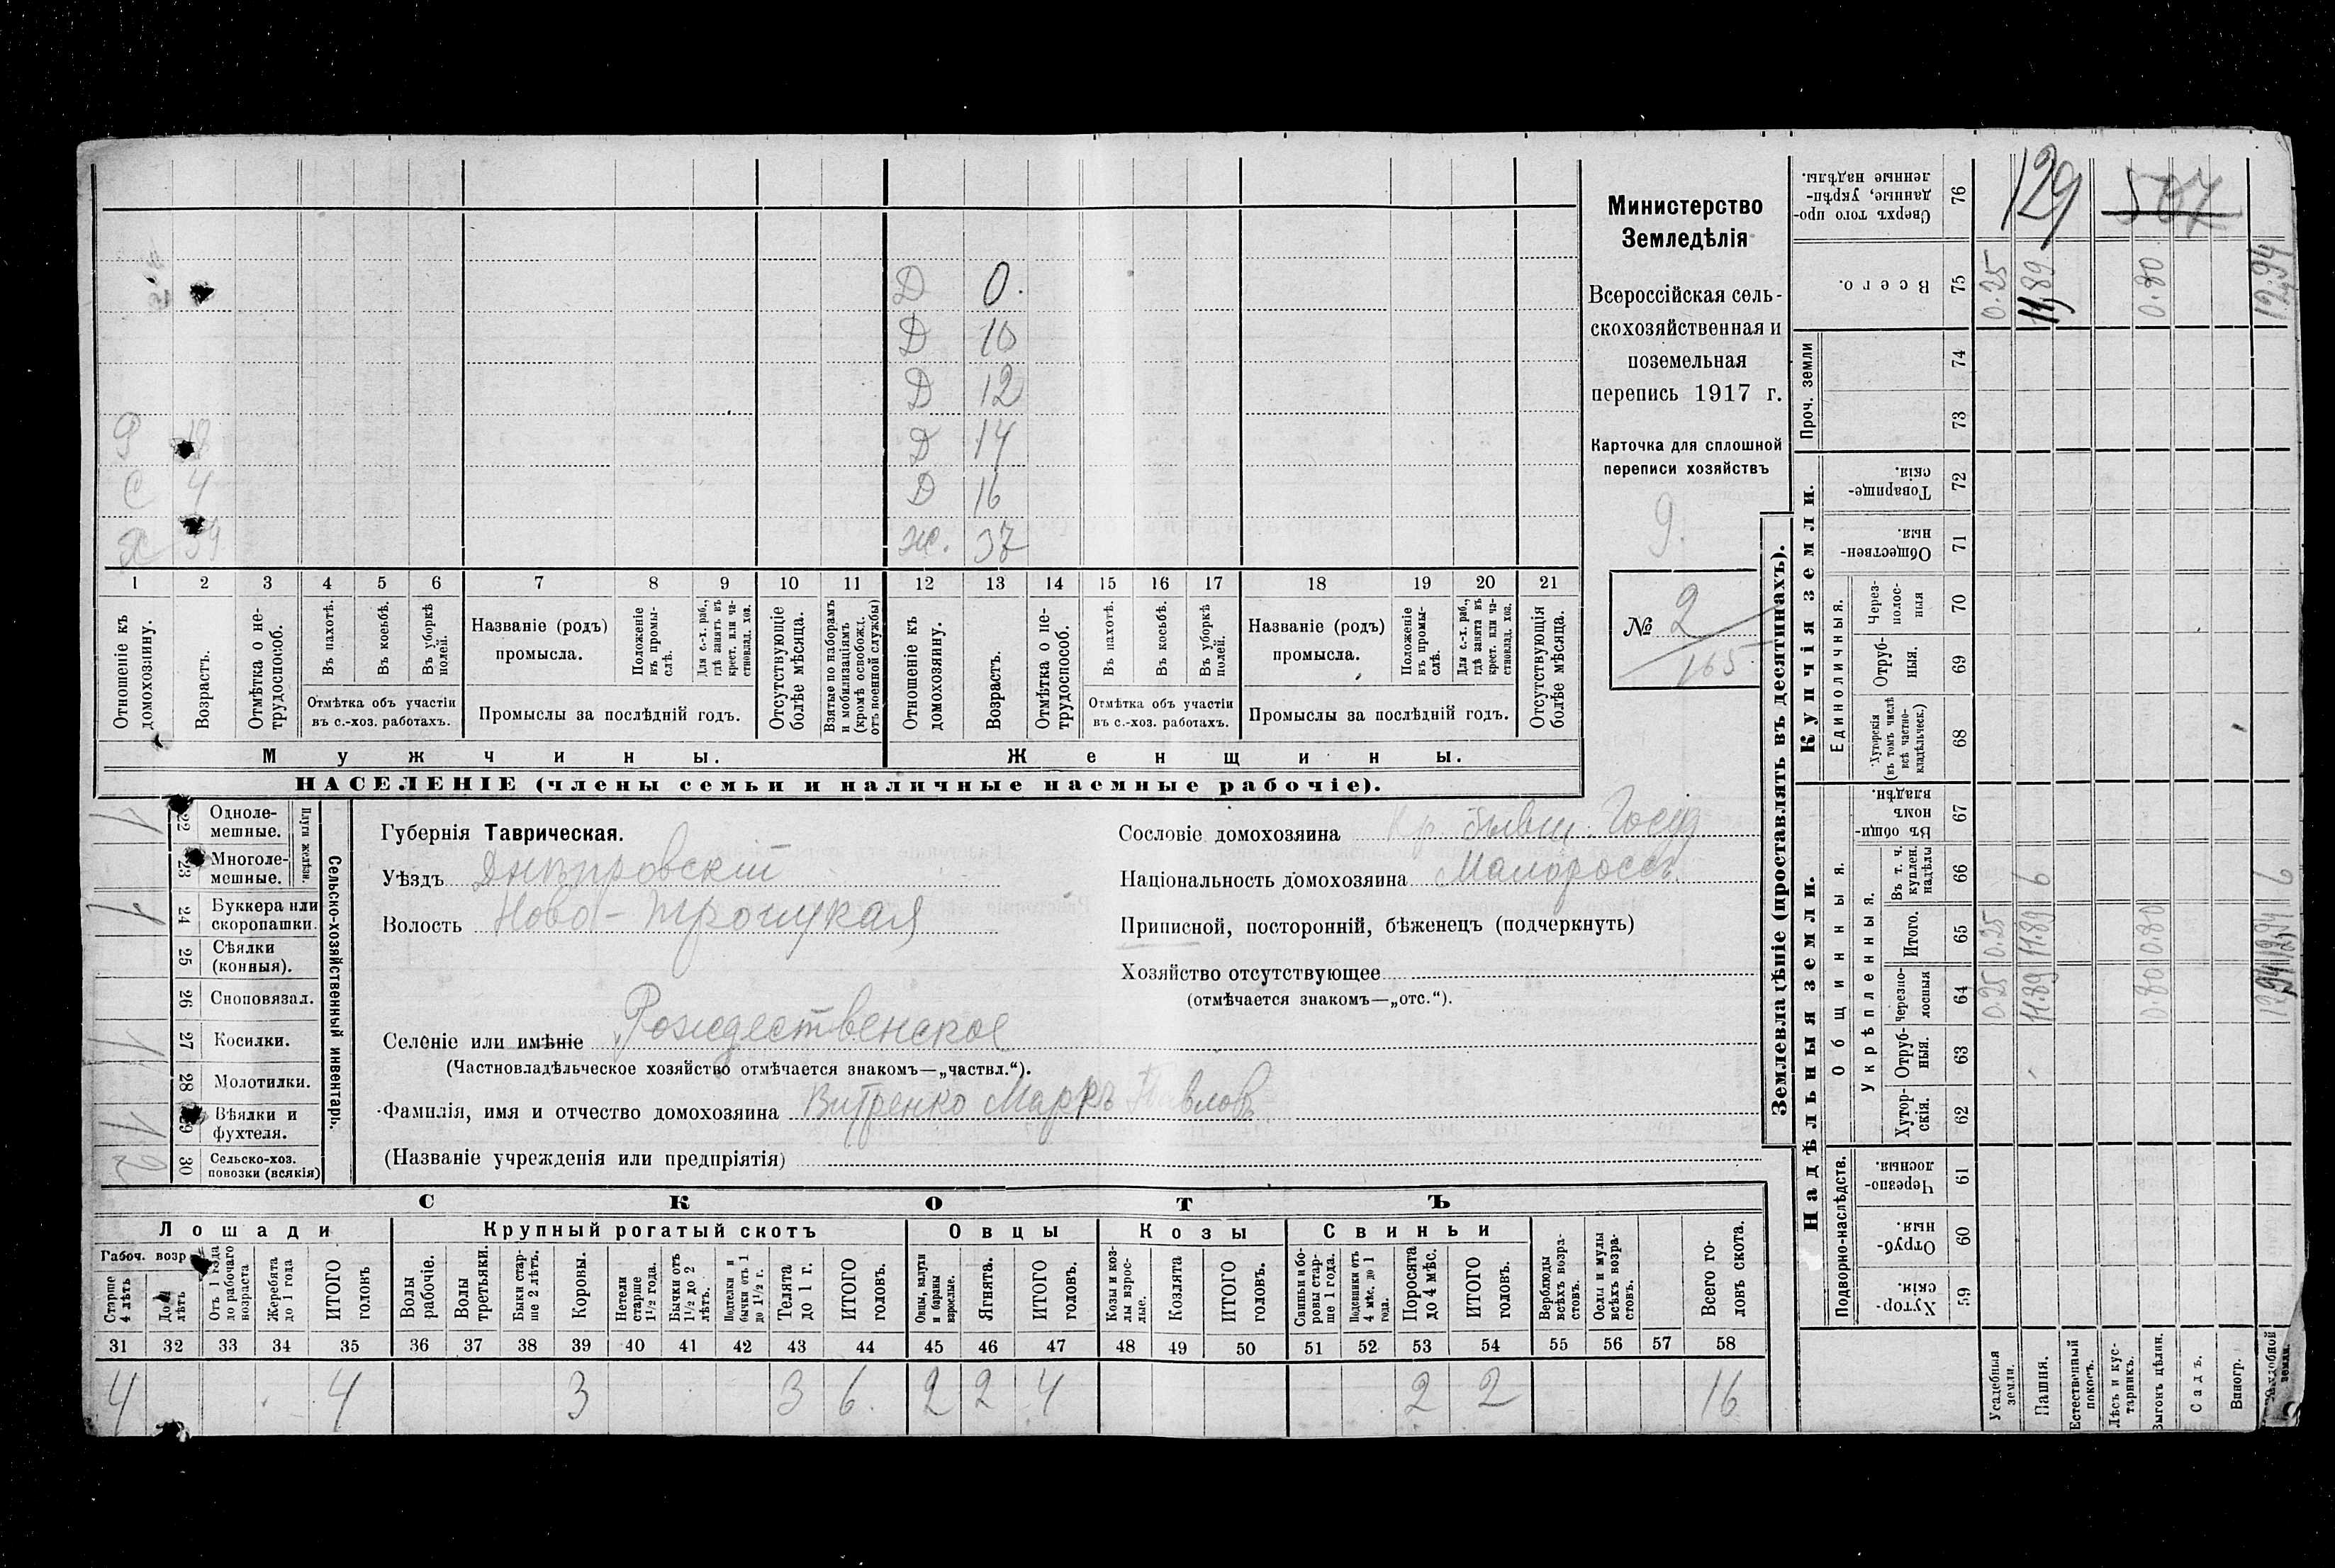 Министерство
Земледѣлія
Всероссійская сель-
скохозяйственная и
поземельная
перепись 1917 г.
Карточка для сплошной
переписи хозяйствъ
9.
№ 2
165
Д 0.
Д 10
Д 12
Р 18 Д 14
С 4 Д 16
Х 39 ж. 37
1 2 3 4 5 6 7 8 9 10 11 12 13 14 15 16 17 18 19 20 21
Отношеніе къ домохозяину.
Возрастъ.
Отмѣтка о не-трудоспособ.
Въ пахотѣ.
Въ косьбѣ.
Въ уборкѣ полей.
Отмѣтка объ участіи
въ с.-хоз. работахъ.
Названіе (родъ)
промысла.
Положеніе въ промы-слѣ.
Для с.-х. раб., гдѣ занятъ въ крест. или ча-стновлад. хоз.
Промыслы за послѣдній годъ.
Отсутствующіе болѣе мѣсяца.
Взятые по наборамъ и мобилизаціямъ (кромѣ освобожд. отъ военной службы)
Отношеніе къ домохозяину.
Возрастъ.
Отмѣтка о не-трудоспособ.
Въ пахотѣ.
Въ косьбѣ.
Въ уборкѣ полей.
Отмѣтка объ участіи
въ с.-хоз. работахъ.
Названіе (родъ)
промысла.
Положеніе въ промы-слѣ.
Для с.-х. раб., гдѣ занята въ крест. или ча-стновлад. хоз.
Промыслы за послѣдній годъ.
Отсутствующія болѣе мѣсяца.
Мужчины. Женщины.
НАСЕЛЕНІЕ (члены семьи и наличные наемные рабочіе).
Сельско-хозяйственный инвентарь.
Плуги желѣзн.
1 22 Одноле-мешные.
23 Многоле-мешные.
1 24 Буккера или скоропашки.
25 Сѣялки (конныя).
26 Сноповязал.
1 27 Косилки.
28 Молотилки.
1 29 Вѣялки и фухтеля.
2 30 Сельско-хоз. повозки (всякія)
Губернія Таврическая.
Уѣздъ Днѣпровскій
Волость Ново-Троицкая
Селеніе или имѣніе Рождественское
(Частновладѣльческое хозяйство отмѣчается знакомъ—„частвл.“).
Фамилія, имя и отчество домохозяина Витренко Маркъ Павловъ
(Названіе учрежденія или предпріятія)
Сословіе домохозяина Кр. бывш. Госуд
Національность домохозяина Малороссъ.
Приписной, посторонній, бѣженецъ (подчеркнуть)
Хозяйство отсутствующее
(отмѣчается знакомъ—„отс.“).
СКОТЪ
Лошади Крупный рогатый скотъ Овцы Козы Свиньи
Рабоч. возр
Старше 4 лѣтъ
До 4 лѣтъ
Отъ 1 года до рабочаго возраста
Жеребята до 1 года
ИТОГО головъ
Волы рабочіе.
Волы третьяки.
Быки стар-ше 2 лѣтъ.
Коровы.
Нетели старше 1½ года.
Бычки отъ 1½ до 2 лѣтъ.
Подтелки и бычки отъ 1 до 1½ г.
Телята до 1 г.
ИТОГО головъ.
Овцы, валухи и бараны взрослые.
Ягнята.
ИТОГО головъ.
Козы и коз-лы взрос-лые.
Козлята
ИТОГО головъ.
Свиньи и бо-ровы стар-ше 1 года.
Подсвинки отъ 4 мѣс. до 1 года.
Поросята до 4 мѣс.
ИТОГО головъ.
Верблюды всѣхъ возра-стовъ.
Ослы и мулы всѣхъ возра-стовъ.
Всего го-ловъ скота.
31 32 33 34 35 36 37 38 39 40 41 42 43 44 45 46 47 48 49 50 51 52 53 54 55 56 57 58
4 4 3 3 6. 2 2 4 2 2 16
Землевладѣніе (проставлять въ десятинахъ).
Надѣльныя земли. Купчія земли. Проч. земли
Подворно-наслѣдств.
Общинныя.
Укрѣпленныя.
Единоличныя.
59 Хутор-скія.
60 Отруб-ныя.
61 Черезпо-лосныя.
62 Хутор-скія.
63 Отруб-ныя.
64 Черезпо-лосныя
65 Итого.
66 Въ т. ч. куплен. надѣлы
67 Въ общи-номъ владѣн.
68 Хуторскія (въ томъ числѣ всѣ частно-владѣльческ.)
69 Отруб-ныя.
70 Через-полос-ныя
71 Обществен-ныя.
72 Товарище-скія.
73
74
75 Всего.
76 Сверхъ того про-данные, укрѣп-ленные надѣлы.
Усадебныя земли. 0.25 0.25 0.25
Пашня. 11.89 11.89 6 11,89
Естественный покосъ.
Лѣсъ и кус-тарникъ.
Выгонъ цѣлин. 0.80 0.80 0.80
Садъ.
Виногр.
12,94 12,94 6 12,94
129
507